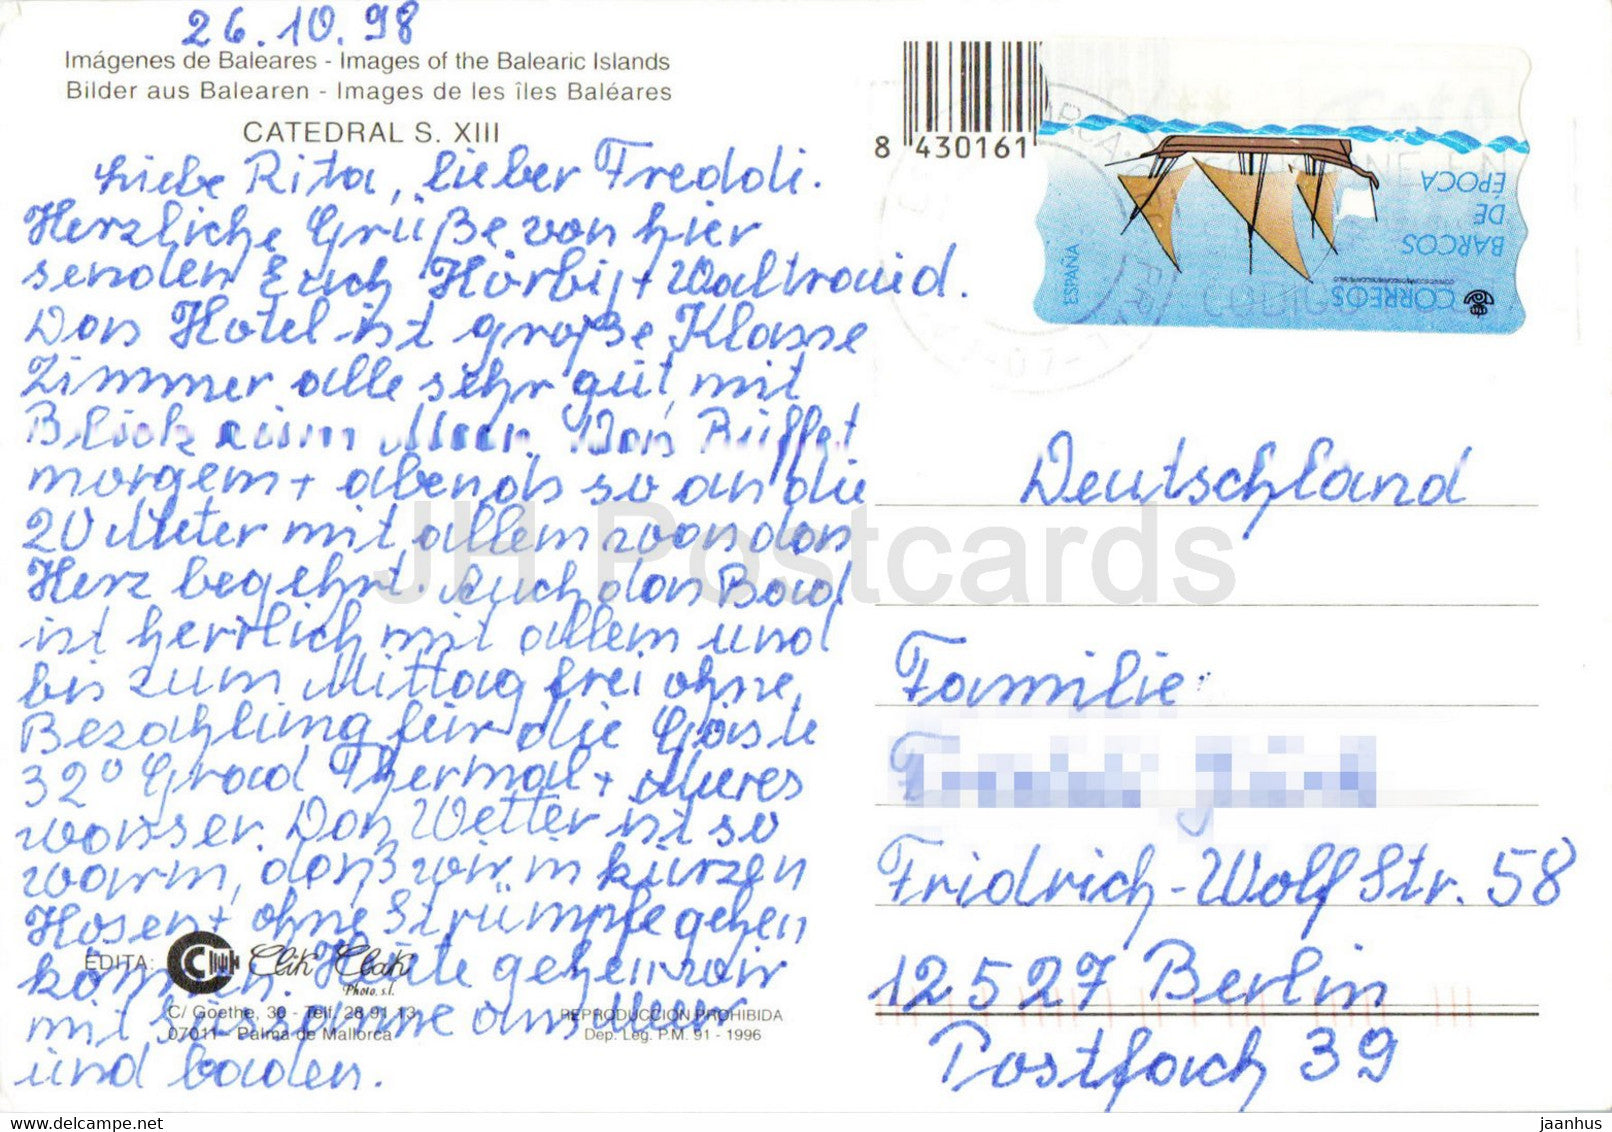 26.10.98
Imágenes de Baleares - Images of the Balearic Islands
Bilder aus Balearen - Images de les îles Baléares
CATEDRAL S. XIII
Liebe Rita, lieber Freddi.
Herzliche Grüße von hier
senden Euch Hörbi + Waltraud.
Das Hotel ist große Klasse
Zimmer alle sehr gut, mit
Blick zum Meer. Das Büffet
morgem + abends so an die
20 Meter mit allem was das
Herz begehrt. Auch das Bad
ist herrlich mit allem und
bis zum Mittag frei ohne
Bezahlung für die Gäste
32° Grad Thermal + Meeres
wasser. Das Wetter ist so
warm, daß wir in kurzen
Hosen + ohne Strümpfe gehen
können. Heute gehen wir
mit ans Meer
und baden.
EDITA: Clik Clak
Photo, s.l.
C/ Goethe, 30 - Telf. 28 91 13
07011 - Palma de Mallorca
REPRODUCCION PROHIBIDA
Dep. Leg. P.M. 91 - 1996
8 430161
CORREOS
ESPAÑA
BARCOS
DE
ÉPOCA
Deutschland
Familie
Fridrich-Wolf Str. 58
12527 Berlin
Postfach 39
JH Postcards
www.delcampe.net
jaanhus